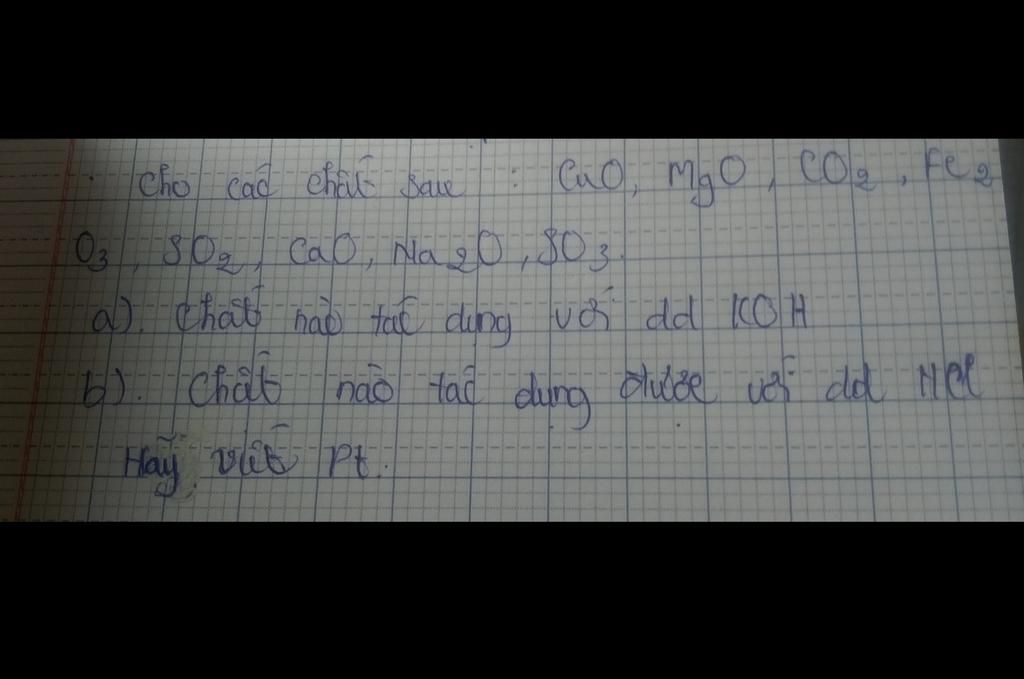 Cho các chất sau : CuO, MgO, CO2, Fe2
O3, SO2, CaO, Na2O, SO3.
a). Chất nào tác dụng với dd KOH
b). Chất nào tác dụng được với dd HCl
Hãy viết Pt.